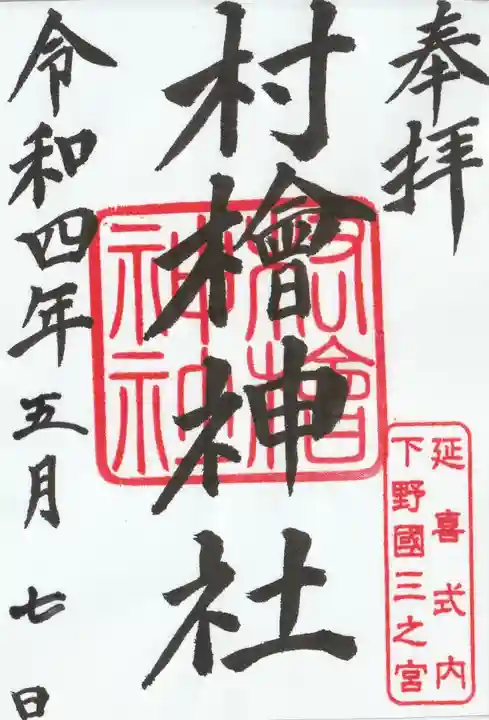 奉拝
延喜式内
下野國三之宮
村檜神社
令和四年五月七日